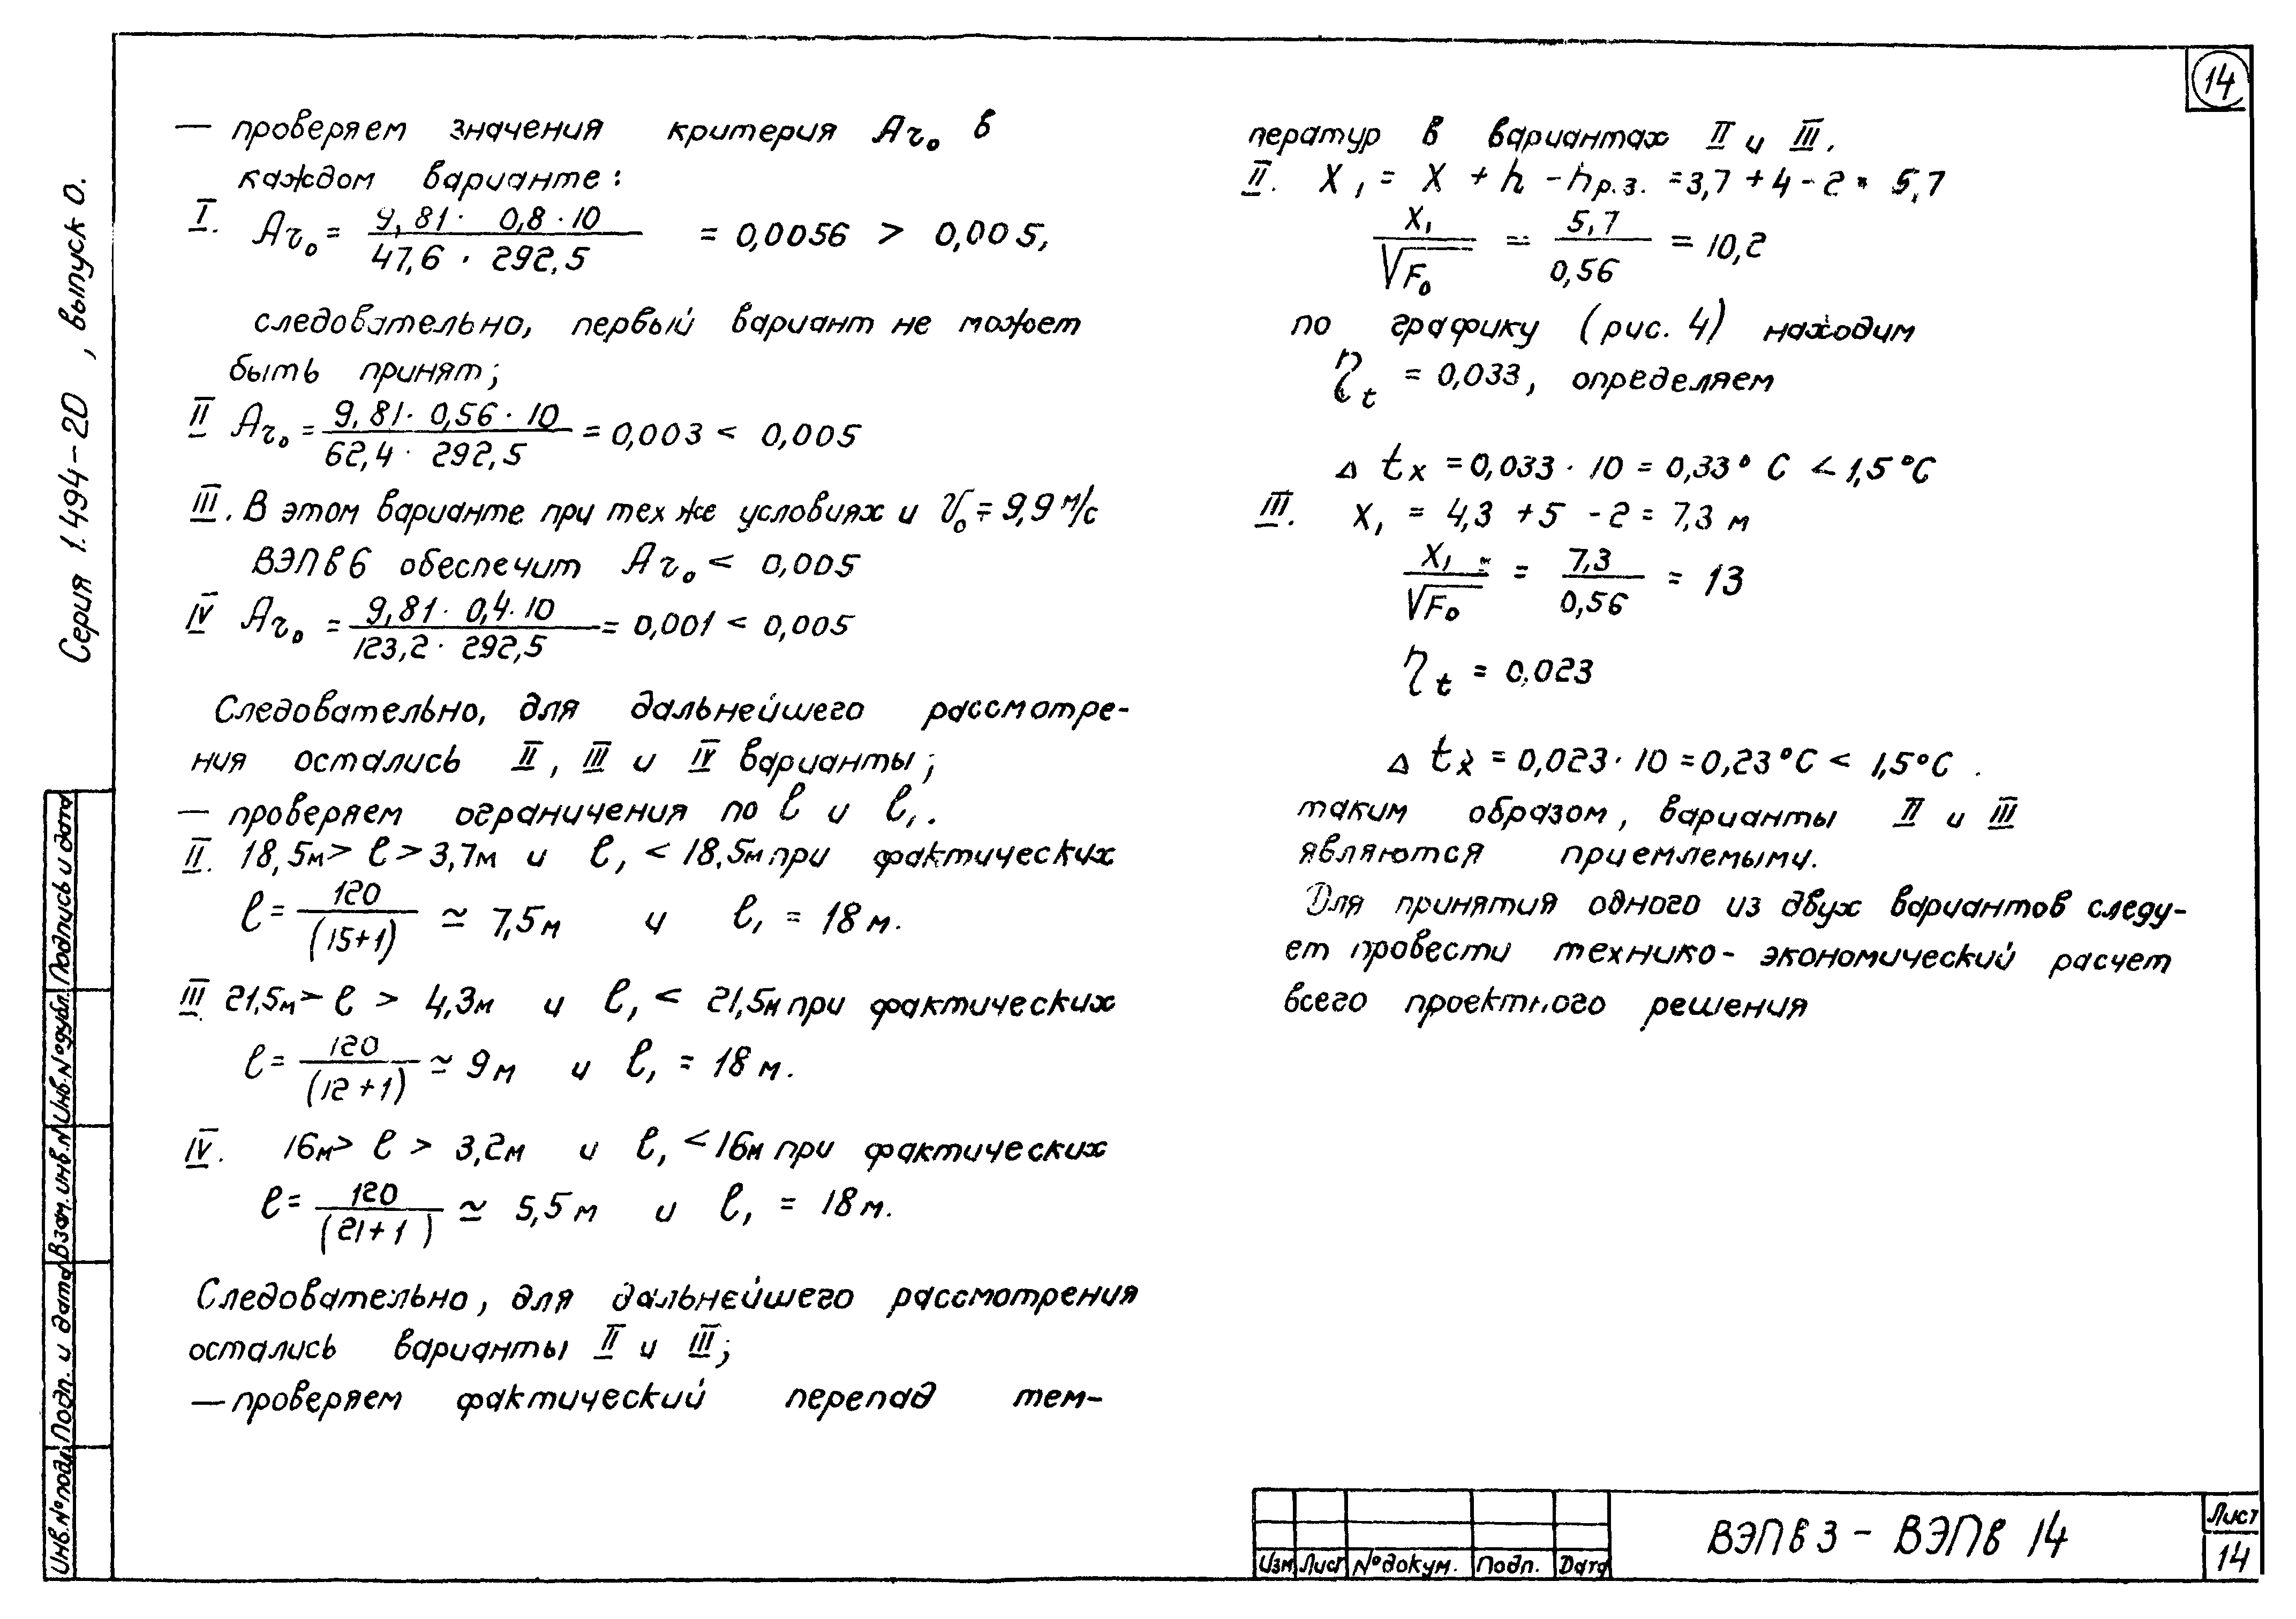 14
— проверяем значения критерия Ar₀ в
каждом варианте:
I. Ar₀ = (9,81 · 0,8 · 10) / (47,6 · 292,5) = 0,0056 > 0,005,
следовательно, первый вариант не может
быть принят;
II Ar₀ = (9,81 · 0,56 · 10) / (62,4 · 292,5) = 0,003 < 0,005
III. В этом варианте при тех же условиях и V₀ = 9,9 м/с
ВЭПв6 обеспечит Ar₀ < 0,005
IV Ar₀ = (9,81 · 0,4 · 10) / (123,2 · 292,5) = 0,001 < 0,005
Следовательно, для дальнейшего рассмотре-
ния остались II, III и IV варианты;
— проверяем ограничения по ℓ и ℓ₁.
II. 18,5м > ℓ > 3,7м и ℓ₁ < 18,5м при фактических
ℓ = 120 / (15+1) ≃ 7,5м и ℓ₁ = 18 м.
III 21,5м > ℓ > 4,3м и ℓ₁ < 21,5м при фактических
ℓ = 120 / (12+1) ≃ 9м и ℓ₁ = 18 м.
IV. 16м > ℓ > 3,2м и ℓ₁ < 16м при фактических
ℓ = 120 / (21+1) ≃ 5,5м и ℓ₁ = 18м.
Следовательно, для дальнейшего рассмотрения
остались варианты II и III;
— проверяем фактический перепад тем-
ператур в вариантах II и III.
II. X₁ = X + h - hр.з. = 3,7 + 4 - 2 = 5,7
X₁ / √F₀ = 5,7 / 0,56 = 10,2
по графику (рис. 4) находим
ηt = 0,033, определяем
Δ tx = 0,033 · 10 = 0,33° С < 1,5°С
III. X₁ = 4,3 + 5 - 2 = 7,3 м
X₁ / √F₀ = 7,3 / 0,56 = 13
ηt = 0,023
Δ tx = 0,023 · 10 = 0,23°С < 1,5°С.
таким образом, варианты II и III
являются приемлемыми.
Для принятия одного из двух вариантов следу-
ет провести технико-экономический расчет
всего проектного решения
Серия 1.494-20, выпуск 0.
Подпись и дата
Инв.№дубл.
Взам.инв.№
Подп. и дата
Инв.№подл.
Изм Лист №докум. Подп. Дата
ВЭПв3 - ВЭПв 14
Лист
14